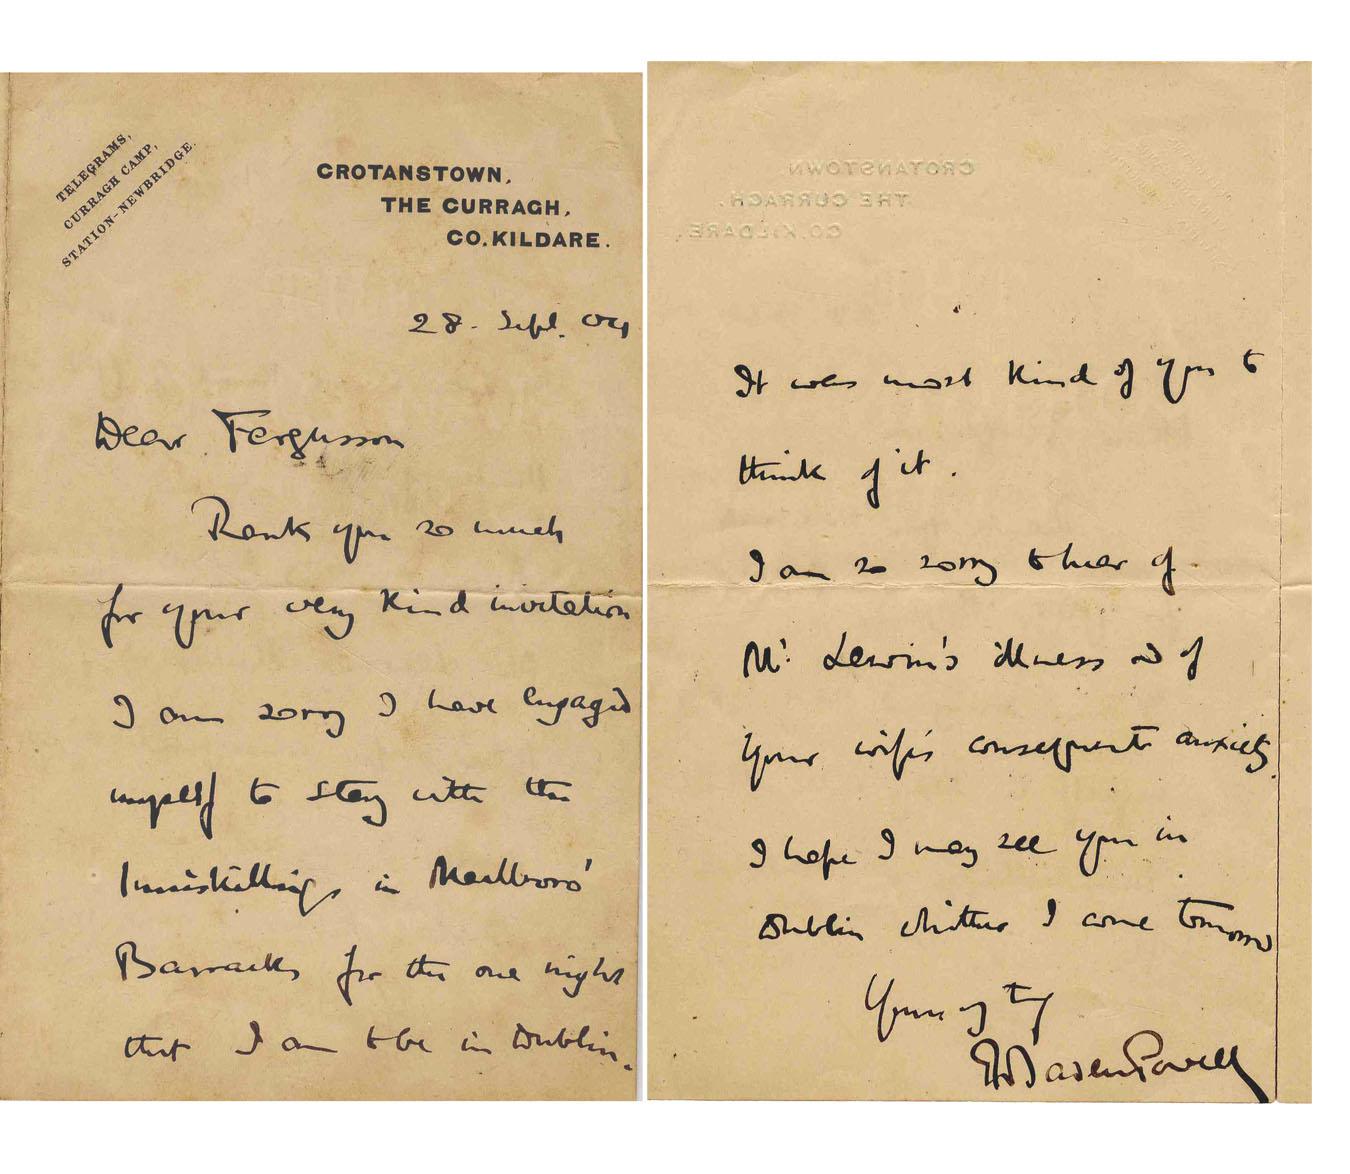 TELEGRAMS,
CURRAGH CAMP,
STATION-NEWBRIDGE.
CROTANSTOWN,
THE CURRAGH,
CO. KILDARE.
28. Sept. 04
Dear Fergusson
Thank you so much
for your very kind invitation
I am sorry I have engaged
myself to stay with the
Inniskillings in Marlboro'
Barracks for the one night
that I am to be in Dublin.
CROTANSTOWN
THE CURRAGH,
CO. KILDARE.
It was most kind of you to
think of it.
I am so sorry to hear of
Mr. Lewin's illness and of
your wife's consequent anxiety.
I hope I may see you in
Dublin whither I come tomorrow
Yours
BadenPowell